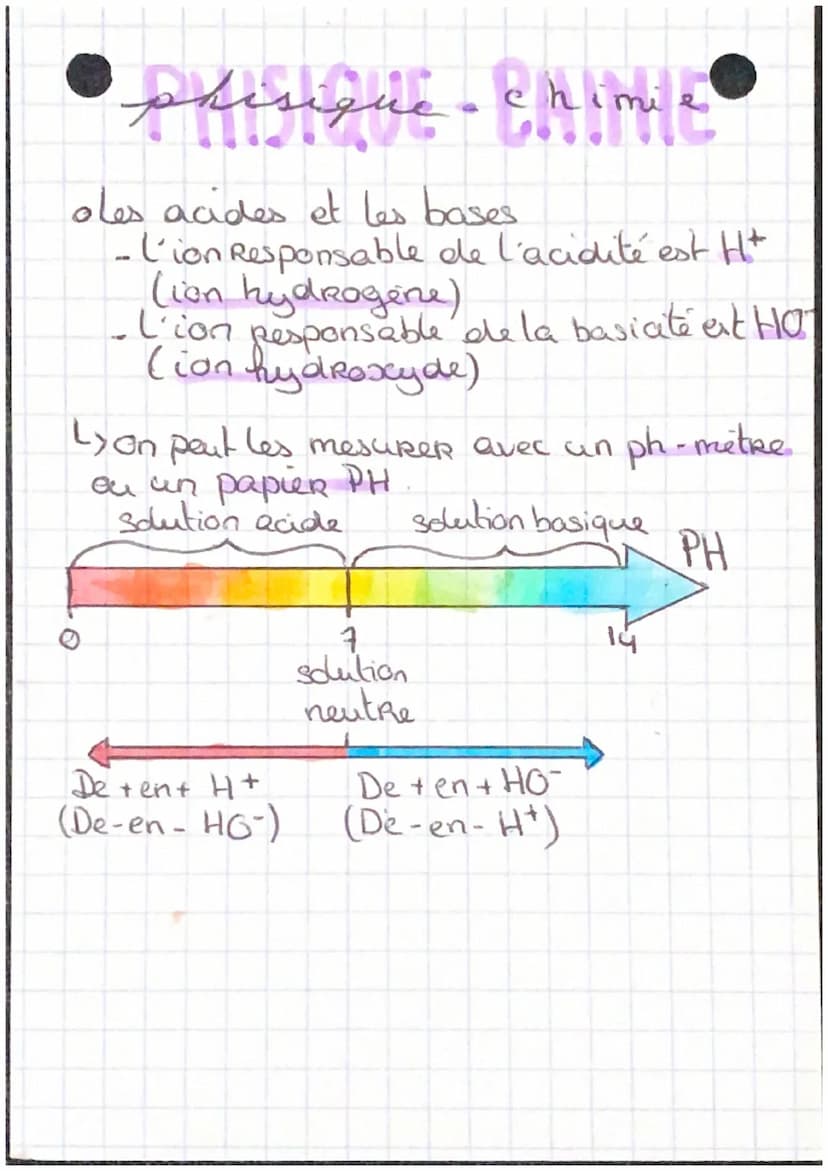 phisique - chimie
o Les acides et les bases
- L'ion Responsable de l'acidité est H+
(ion hydrogène)
- L'ion responsable de la basicité est HO-
(ion hydroxyde)
↳ on peut les mesurer avec un ph-mètre
ou un papier PH.
solution acide solution basique
PH
0 7 14
solution
neutre
De + en + H+ De + en + HO-
(De - en - HO-) (De - en - H+)